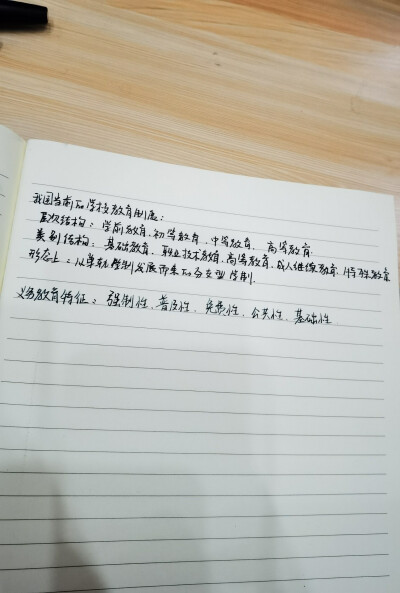 我国当前的学校教育制度：
层次结构：学前教育、初等教育、中等教育、高等教育.
类别结构：基础教育、职业技术教育、高等教育、成人继续教育、特殊教育
形态上：从单轨学制发展而来的分支型学制.
义务教育特征：强制性、普及性、免费性、公共性、基础性